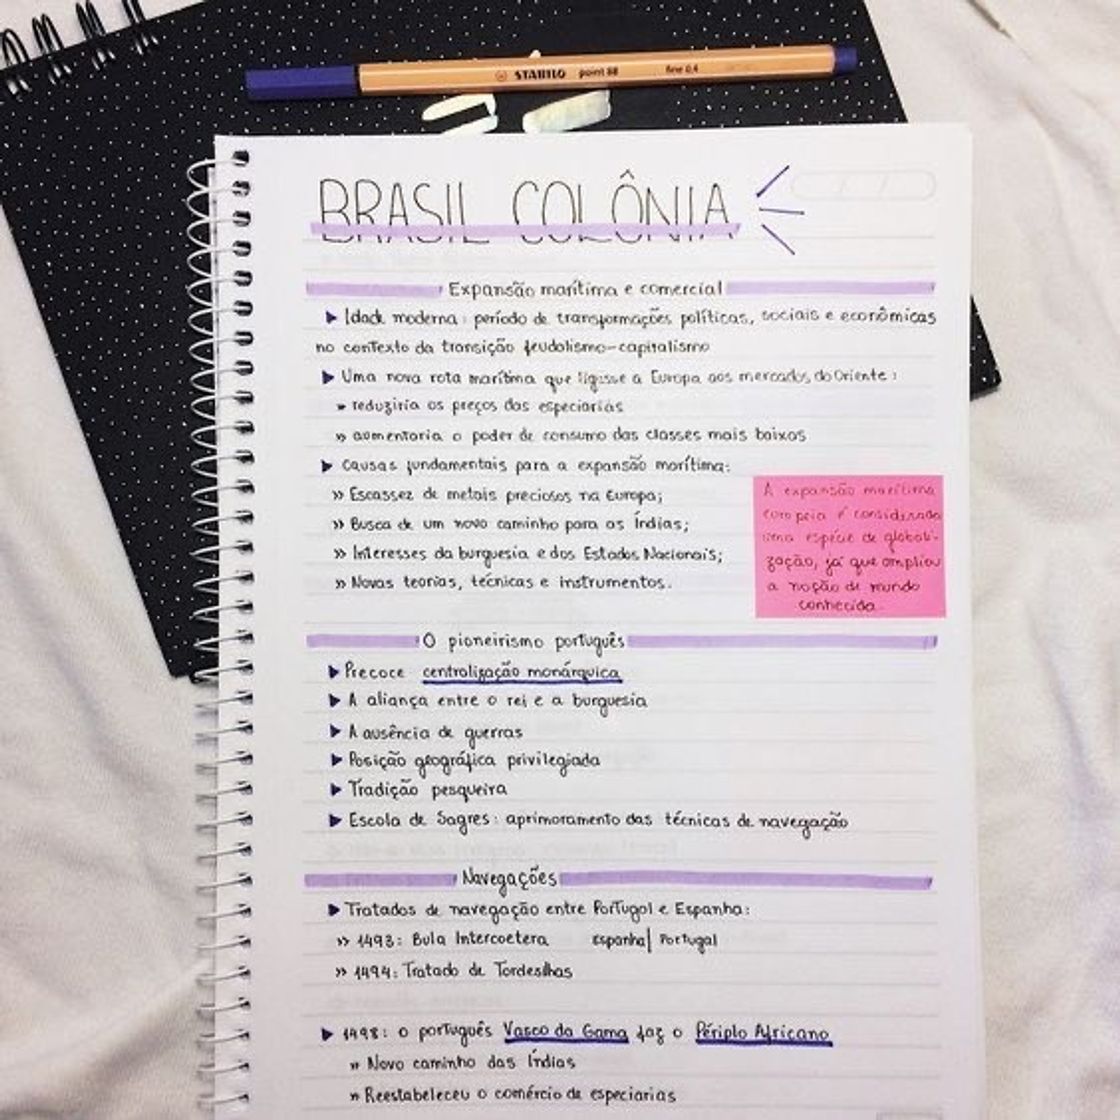 STABILO point 88 fine 0,4
BRASIL COLÔNIA
Expansão marítima e comercial
Idade moderna: período de transformações políticas, sociais e econômicas
no contexto da transição feudalismo-capitalismo
Uma nova rota marítima que ligasse a Europa aos mercados do Oriente:
» reduziria os preços das especiarias
» aumentaria o poder de consumo das classes mais baixas
Causas fundamentais para a expansão marítima:
» Escassez de metais preciosos na Europa;
» Busca de um novo caminho para as Índias;
» Interesses da burguesia e dos Estados Nacionais;
» Novas teorias, técnicas e instrumentos.
A expansão marítima
europeia é considerada
uma espécie de globali-
zação, já que ampliou
a noção de mundo
conhecida.
O pioneirismo português
Precoce centralização monárquica
A aliança entre o rei e a burguesia
A ausência de guerras
Posição geográfica privilegiada
Tradição pesqueira
Escola de Sagres: aprimoramento das técnicas de navegação
Navegações
Tratados de navegação entre Portugal e Espanha:
» 1493: Bula Intercoetera Espanha| Portugal
» 1494: Tratado de Tordesilhas
1498: o português Vasco da Gama faz o Périplo Africano
» Novo caminho das Índias
» Reestabeleceu o comércio de especiarias